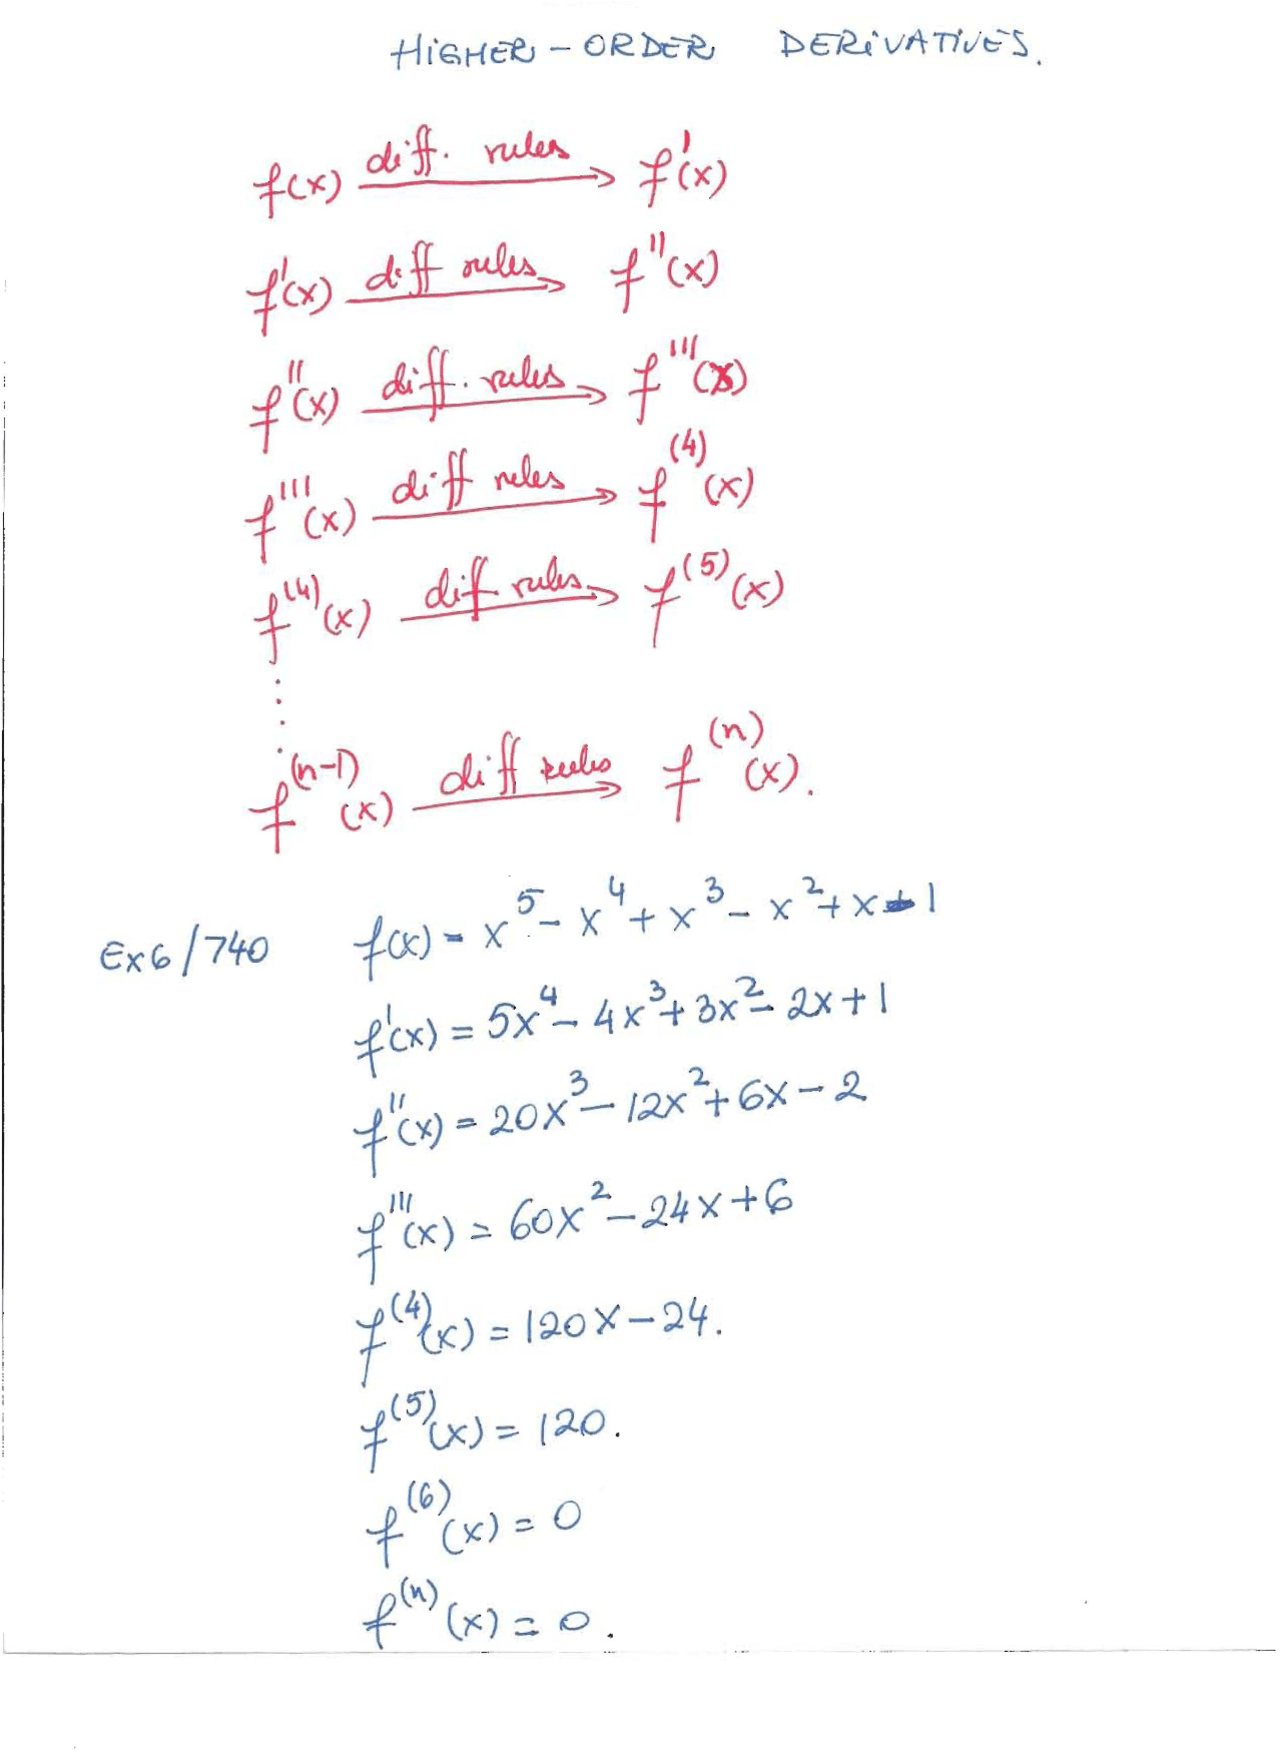 HIGHER-ORDER DERIVATIVES.
f(x) diff. rules → f'(x)
f'(x) diff rules → f''(x)
f''(x) diff. rules → f'''(x)
f'''(x) diff rules → f^(4)(x)
f^(4)(x) dif rules → f^(5)(x)
⋮
f^(n-1)(x) diff rules → f^(n)(x).
Ex6/740 f(x) = x^5 - x^4 + x^3 - x^2 + x - 1
f'(x) = 5x^4 - 4x^3 + 3x^2 - 2x + 1
f''(x) = 20x^3 - 12x^2 + 6x - 2
f'''(x) = 60x^2 - 24x + 6
f^(4)(x) = 120x - 24.
f^(5)(x) = 120.
f^(6)(x) = 0
f^(n)(x) = 0.